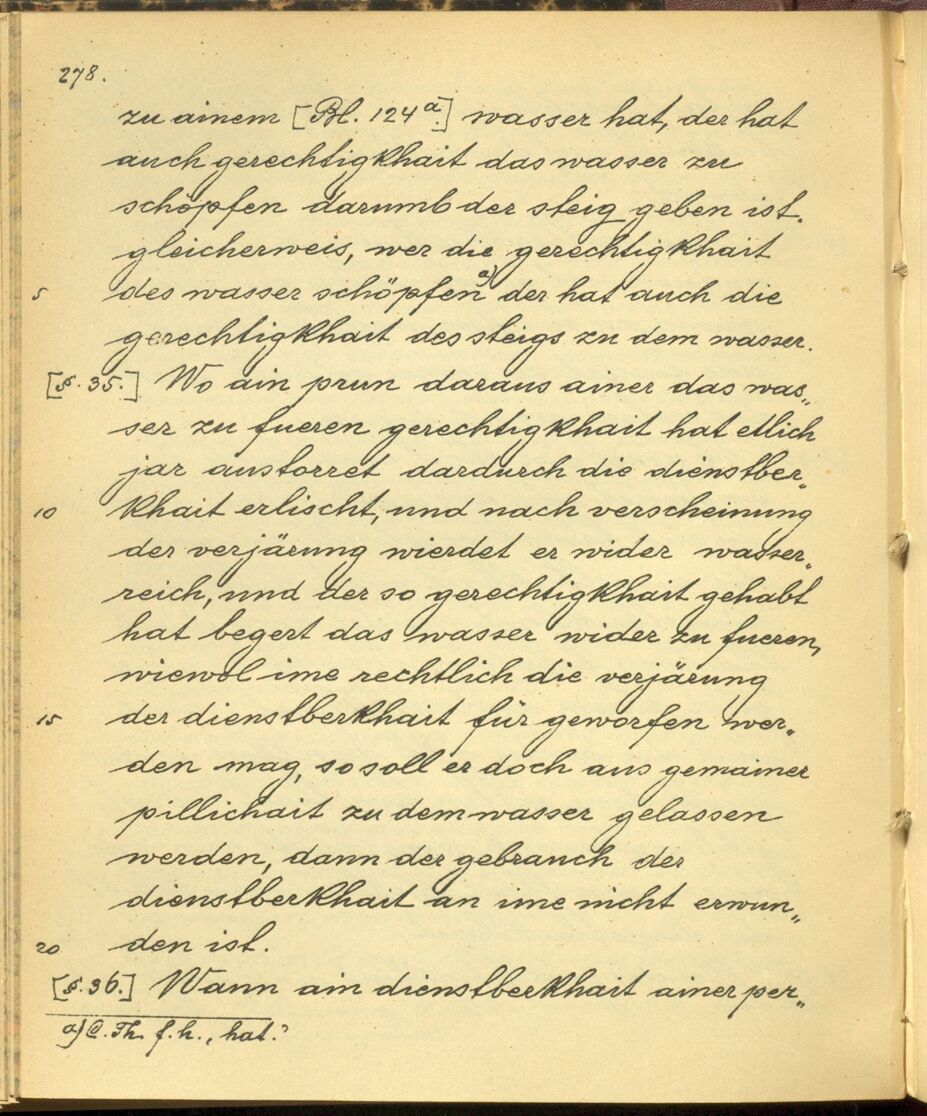 278.
zu ainem [Bl. 124a.] wasser hat, der hat
auch gerechtigkhait das wasser zu
schöpfen darumb der steig geben ist.
gleicherweis, wer die gerechtigkhait
5 des wasser schöpfen a) der hat auch die
gerechtigkhait des steigs zu dem wasser.
[§. 35.] Wo ain prun daraus ainer das was„
ser zu fueren gerechtigkhait hat etlich
jar austorret dardurch die dienstber„
10 khait erlischt, und nach verscheinung
der verjärung wierdet er wider wasser„
reich, und der so gerechtigkhait gehabt
hat begert das wasser wider zu fueren,
wiewol ime rechtlich die verjärung
15 der dienstberkhait für geworfen wer„
den mag, so soll er doch aus gemainer
pillichait zu dem wasser gelassen
werden, dann der gebrauch der
dienstberkhait an ime nicht erwun„
20 den ist.
[§. 36.] Wann ain dienstberkhait ainer per„
a) C. Th. f. h., hat.